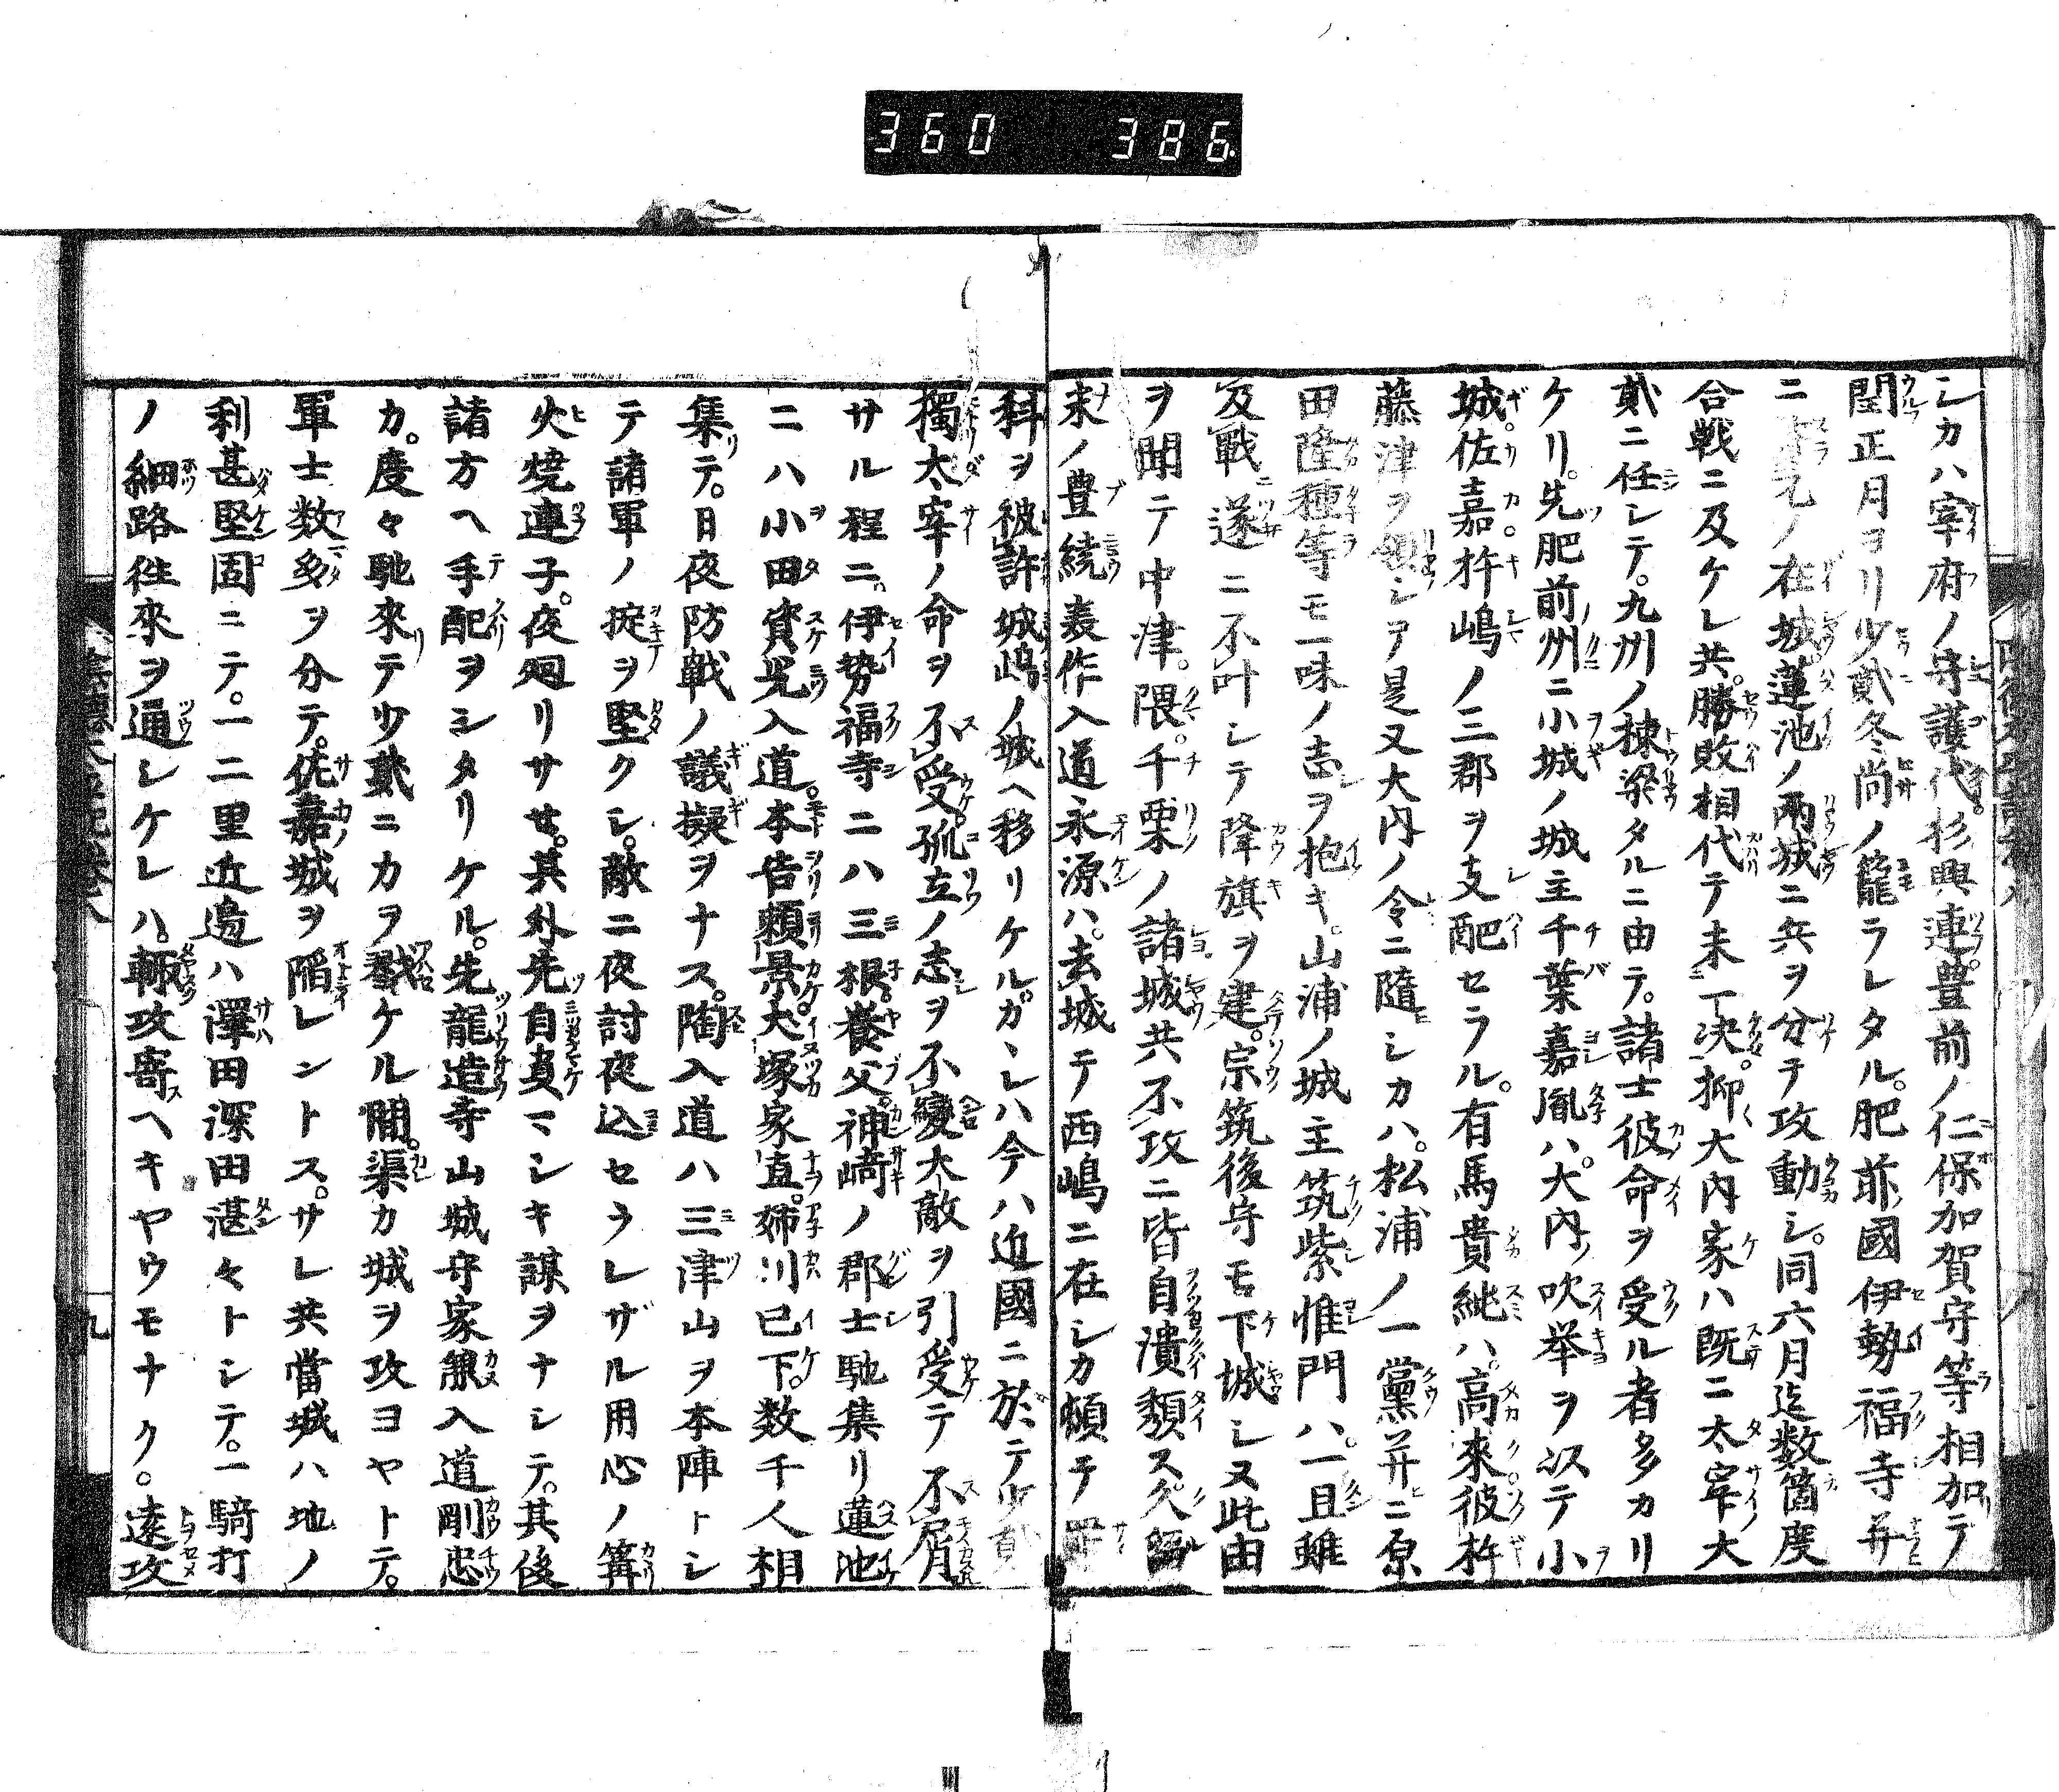 360 386
シカハ宰府ノ守護代杉興連豊前ノ仁保加賀守等相加テ
閏正月ヨリ少貳冬尚ノ籠ラレタル。肥前國伊勢福寺并
ニ元ノ在城蓮池ノ兩城ニ兵ヲ分テ攻動シ。同六月迄数箇度
合戦ニ及ケレ共。勝敗相代テ未决。抑大内家ハ既ニ太宰大
貳ニ任シテ。九州ノ棟梁タルニ由テ。諸士彼命ヲ受ル者多カリ
ケリ。先肥前州ニ小城ノ城主千葉嘉胤ハ。大内ノ吹挙ヲ以テ小
城。佐嘉。杵嶋ノ三郡ヲ支配セラル。有馬貴純ハ。高來。彼杵
藤津ヲ領シテ是又大内ノ令ニ隨シカハ。松浦ノ一黨并ニ原
田隆種等モ一味ノ志ヲ抱キ。山浦ノ城主筑紫惟門ハ。一旦雖
及戰遂ニ不叶シテ降旗ヲ建。宗筑後守モ下城シヌ此由
ヲ聞テ中津。隈。千栗ノ諸城共不攻ニ皆自潰頽ス久留
末ノ豊繞美作入道永源ハ。去城テ西嶋ニ在シカ頓テ
科ヲ彼許城嶋ノ城ヘ移リケルカヽレハ今ハ近國ニ於テ少貳
獨太宰ノ命ヲ不受。孤立ノ志ヲ不變大敵ヲ引受テ不屑
サル程ニ。伊勢福寺ニハ三根。養父。神﨑ノ郡士馳集リ蓮池
ニハ小田資光入道。本告頼景。犬塚家直。姉川已下。数千人相
集テ。日夜防戰ノ議擬ヲナス。陶入道ハ三津山ヲ本陣トシ
テ諸軍ノ掟ヲ堅クシ。敵ニ夜討夜込セラレザル用心ノ篝
火焼連子。夜廻リサセ。其外先自身マシキ謀ヲナシテ。其後
諸方ヘ手配ヲシタリケル。先龍造寺山城守家兼入道剛忠
カ。度々馳來テ少貳ニカヲ戮ケル間。渠カ城ヲ攻ヨヤトテ。
軍士数多ヲ分テ。佐嘉城ヲ陥レントス。サレ共當城ハ地ノ
利甚堅固ニテ。一二里近邉ハ澤田深田湛々トシテ。一騎打
ノ細路徃來ヲ通シケレハ。輙攻寄ヘキヤウモナク。遠攻
九